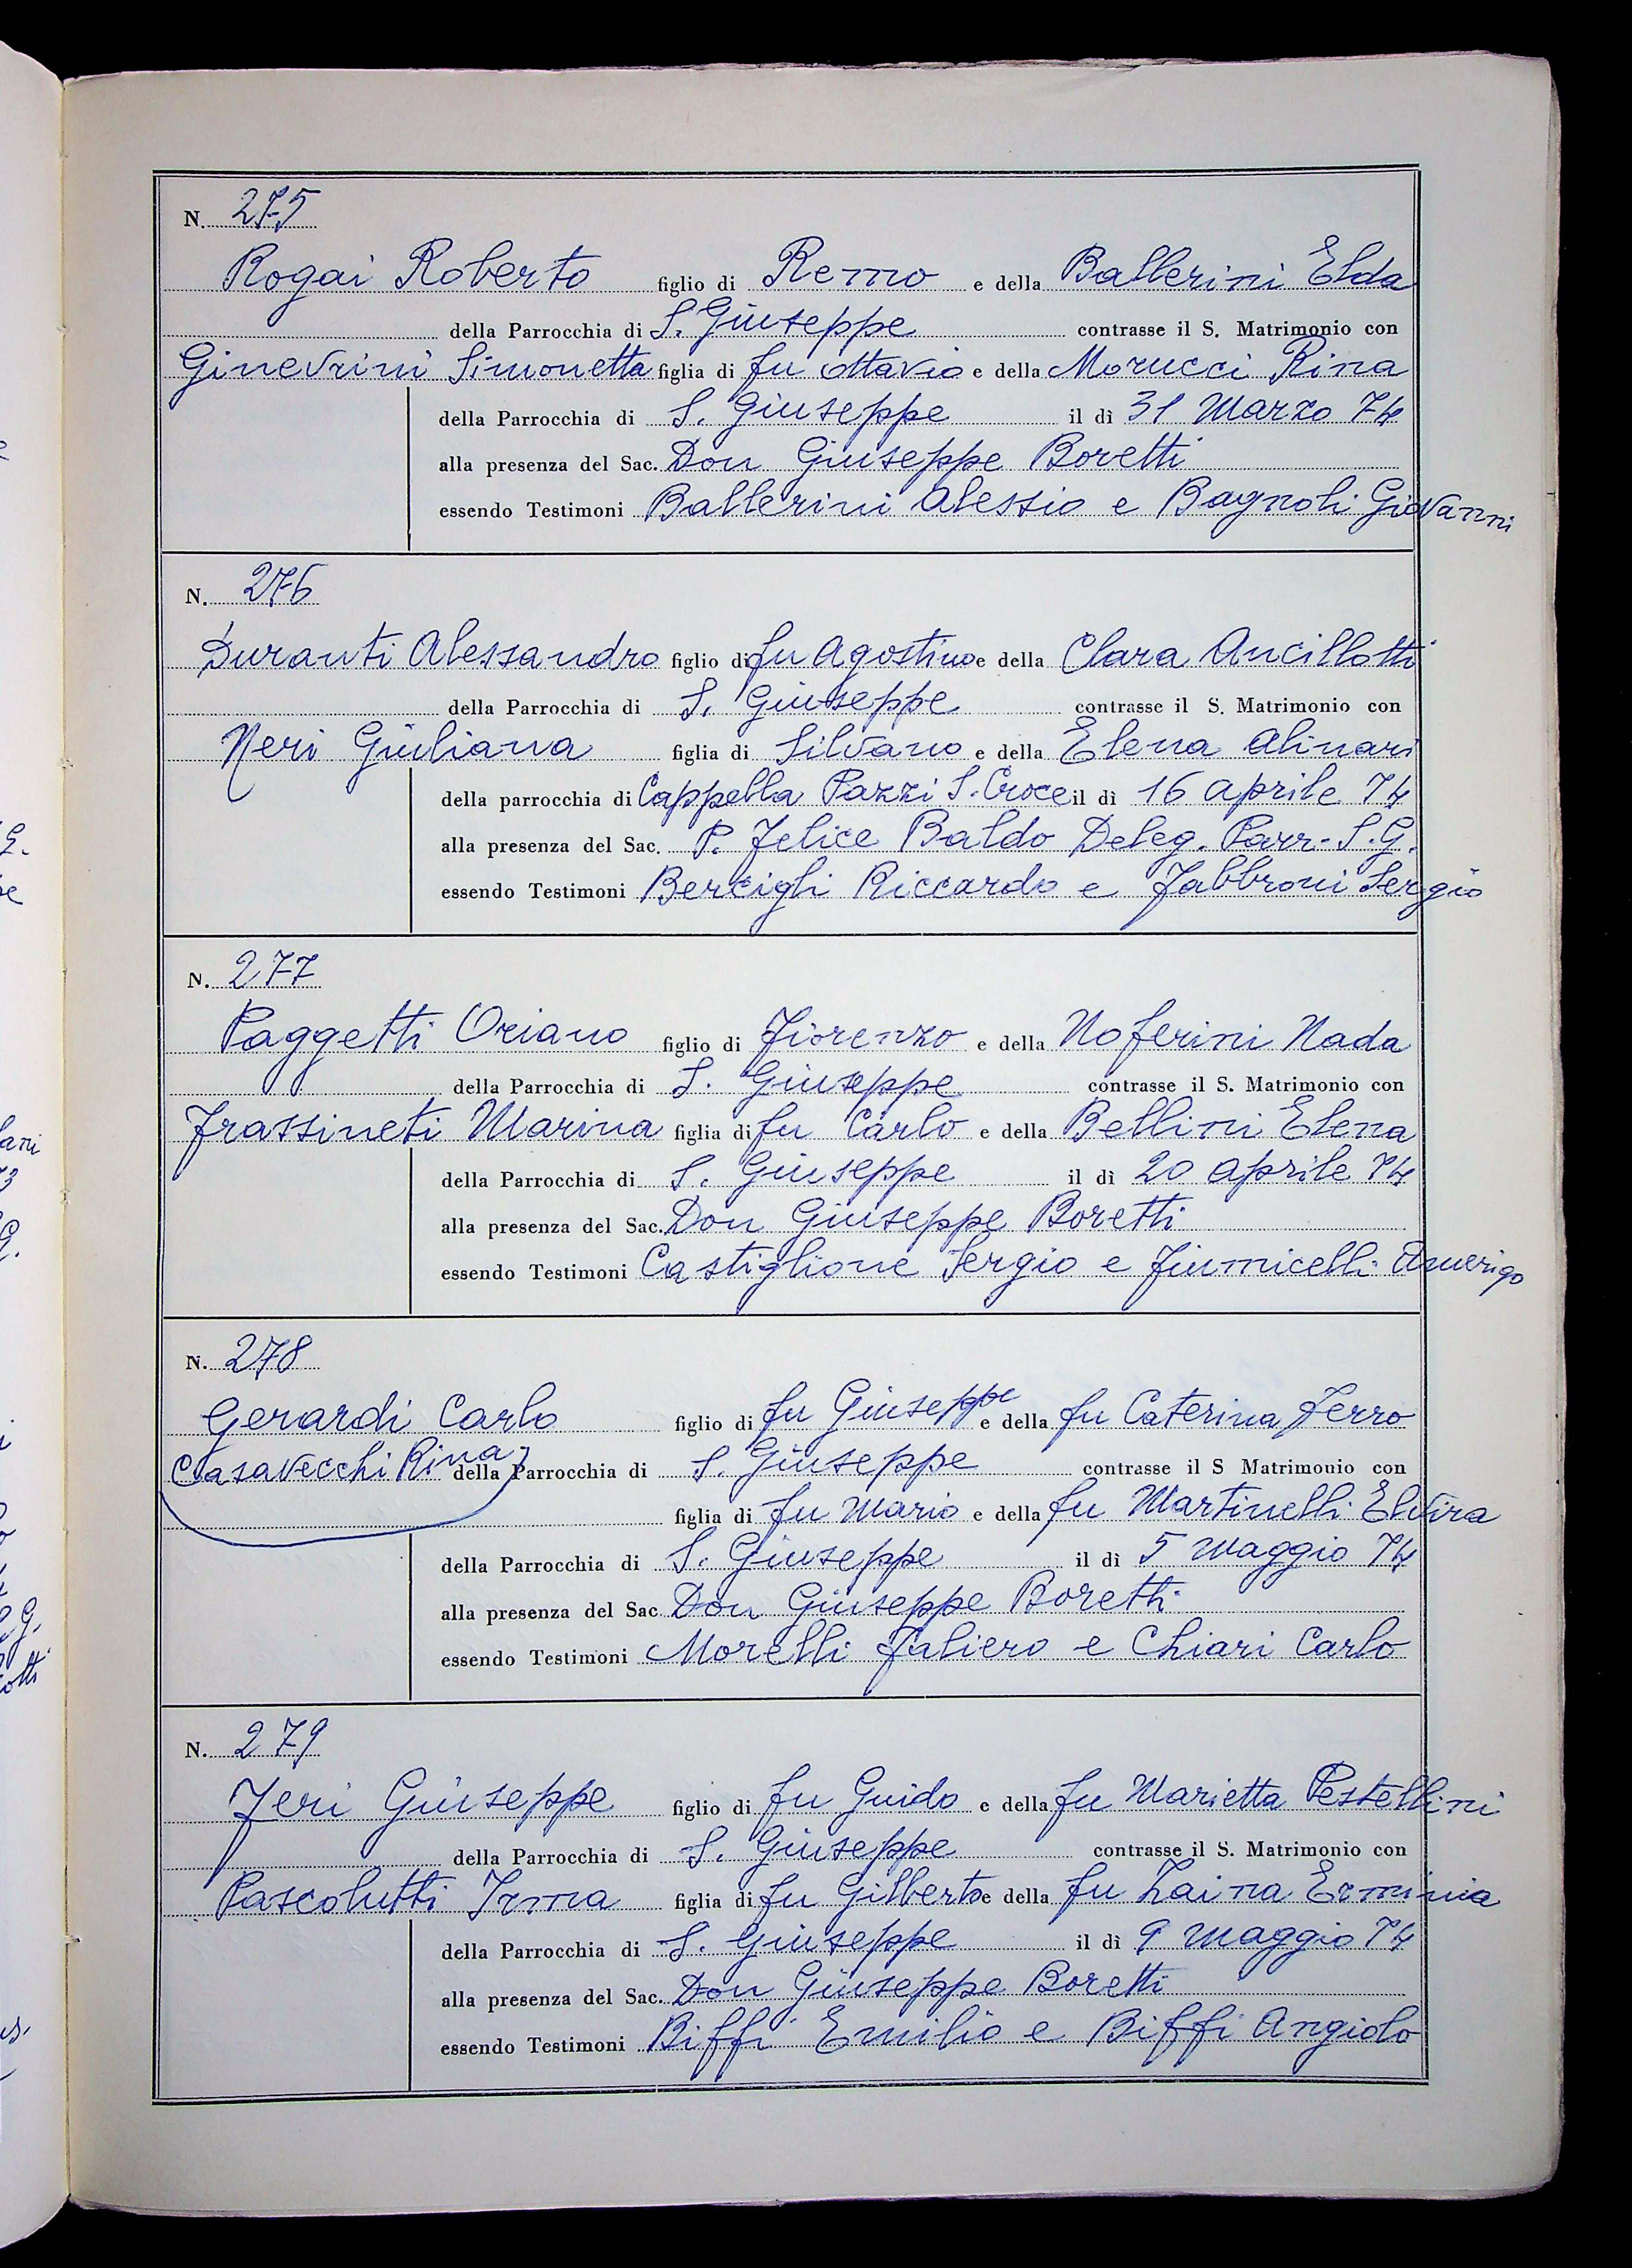 N. 275
Rogai Roberto figlio di Remo e della Ballerini Elda
della Parrocchia di S. Giuseppe contrasse il S. Matrimonio con
Ginevrini Simonetta figlia di fu Ottavio e della Morucci Rina
della Parrocchia di S. Giuseppe il dì 31 Marzo 74
alla presenza del Sac. Don Giuseppe Boretti
essendo Testimoni Ballerini Alessio e Bagnoli Giovanni
N. 276
Duranti Alessandro figlio di fu Agostino e della Clara Ancillotti
della Parrocchia di S. Giuseppe contrasse il S. Matrimonio con
Neri Giuliana figlia di Silvano e della Elena Alinari
della parrocchia di Cappella Pazzi S. Croce il dì 16 Aprile 74
alla presenza del Sac. P. Felice Baldo Deleg. Parr. S. G.
essendo Testimoni Bercigli Riccardo e Fabbroni Sergio
N. 277
Paggetti Oriano figlio di Fiorenzo e della Noferini Nada
della Parrocchia di S. Giuseppe contrasse il S. Matrimonio con
Frassineti Marina figlia di fu Carlo e della Bellini Elena
della Parrocchia di S. Giuseppe il dì 20 Aprile 74
alla presenza del Sac. Don Giuseppe Boretti
essendo Testimoni Castiglione Sergio e Fiumicelli Amerigo
N. 278
Gerardi Carlo figlio di fu Giuseppe e della fu Caterina Ferro
Casavecchi Rina della Parrocchia di S. Giuseppe contrasse il S Matrimonio con
figlia di fu Mario e della fu Martinelli Elvira
della Parrocchia di S. Giuseppe il dì 5 Maggio 74
alla presenza del Sac Don Giuseppe Boretti
essendo Testimoni Morelli Faliero e Chiari Carlo
N. 279
Jeri Giuseppe figlio di fu Guido e della fu Marietta Pestellini
della Parrocchia di S. Giuseppe contrasse il S. Matrimonio con
Pascolutti Irma figlia di fu Gilberto e della fu Zaina Erminia
della Parrocchia di S. Giuseppe il dì 9 Maggio 74
alla presenza del Sac. Don Giuseppe Boretti
essendo Testimoni Biffi Emilio e Biffi Angiolo